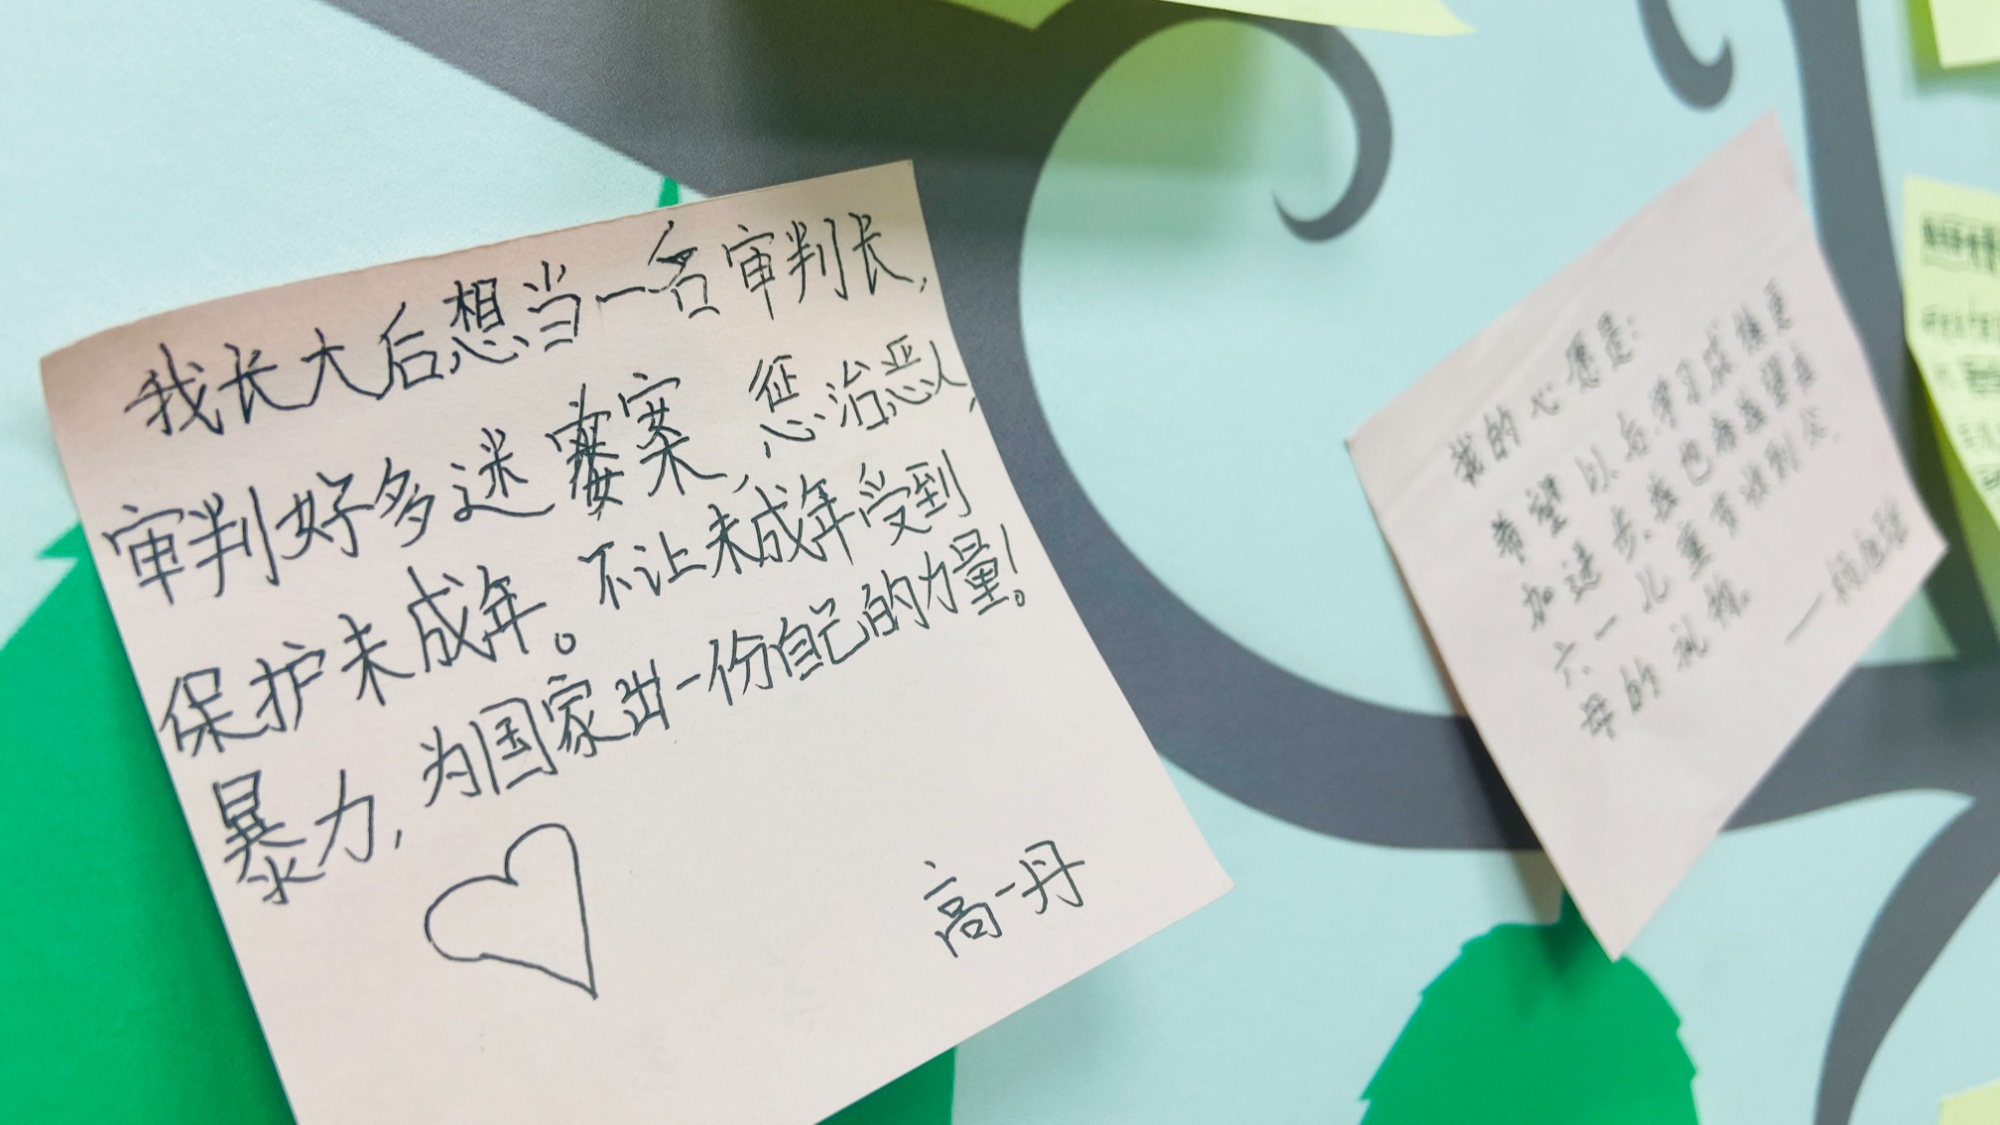 我长大后想当一名审判长,
审判好多迷案,惩治恶人,
保护未成年。不让未成年受到
暴力,为国家出一份自己的力量!
高一丹
我的心愿是:
希望以后学习成绩更
加进步,我也希望在
六一儿童节收到父
母的礼物。